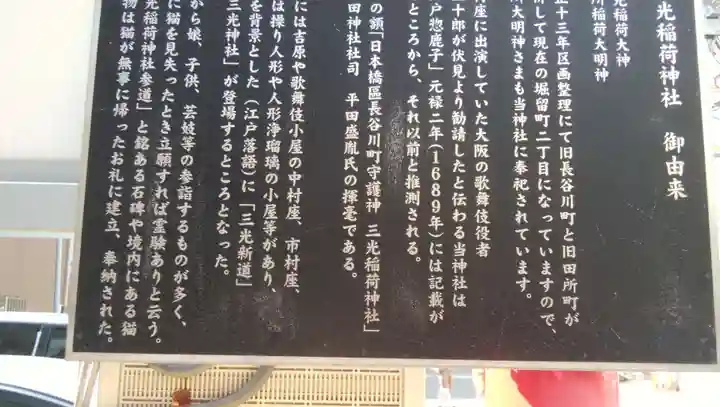 光稲荷神社　御由来
光稲荷大神
川稲荷大明神
正十三年区画整理にて旧長谷川町と旧田所町が
併して現在の堀留町二丁目になっていますので、
川大明神さまも当神社に奉祀されています。
座に出演していた大阪の歌舞伎役者
十郎が伏見より勧請したと伝わる当神社は
戸惣鹿子」元禄二年(1689年)には記載が
ところから、それ以前と推測される。
の額「日本橋區長谷川町守護神　三光稲荷神社」
田神社社司　平田盛胤氏の揮毫である。
には吉原や歌舞伎小屋の中村座、市村座、
は操り人形や人形浄瑠璃の小屋等があり、
を背景とした(江戸落語)に「三光新道」
三光神社」が登場するところとなった。
から娘、子供、芸妓等の参詣するものが多く、
に猫を見失ったとき立願すれば霊験ありと云う。
光稲荷神社参道」と銘ある石碑や境内にある猫
物は猫が無事に帰ったお礼に建立、奉納された。